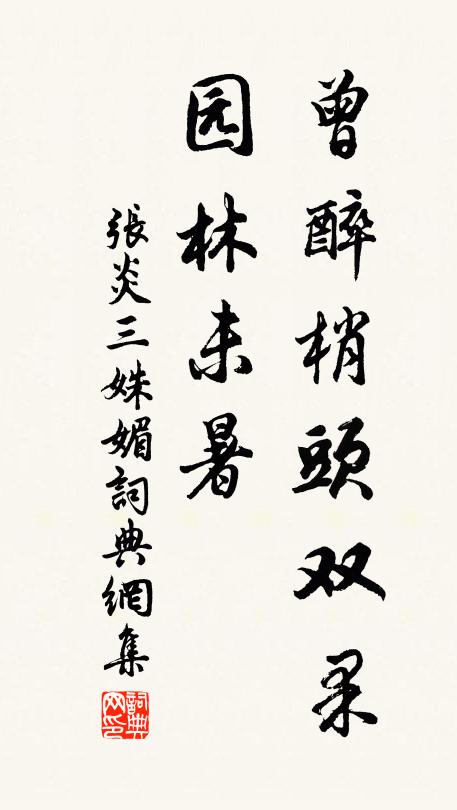 曾醉梢頭双果
园林未暑
張炎三姝媚詞典網集
詞典网印